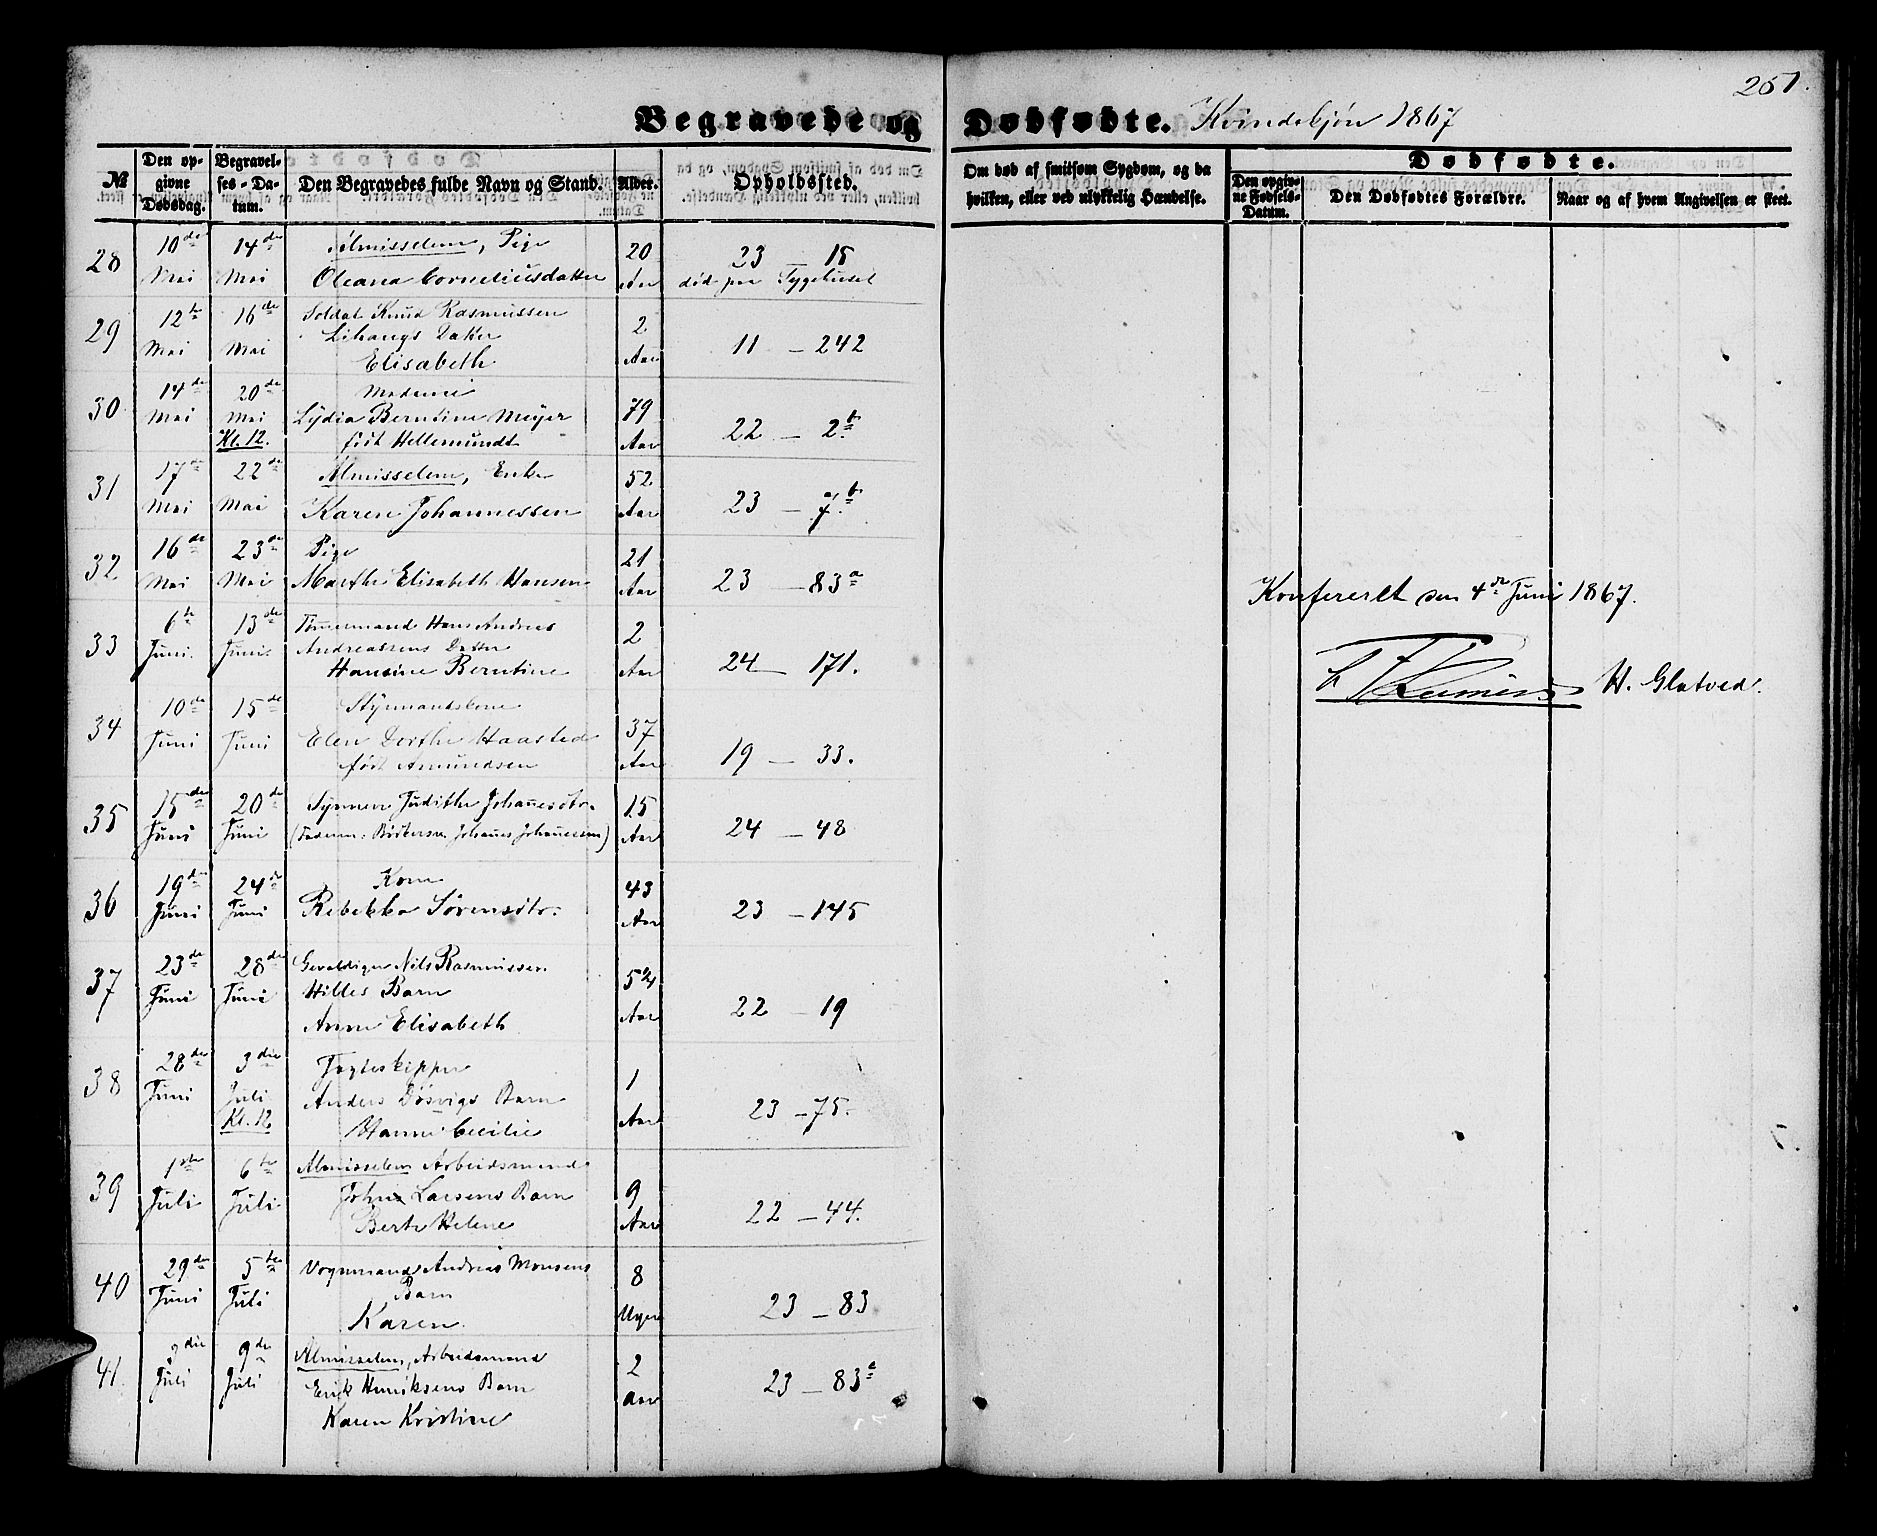 251.
Begravede og Dødfødte. Kvindekjøn 1867
№
Den opgivne Dødsdag.
Begravelses-Datum.
Den Begravedes fulde Navn og Stand.
Alder.
Opholdssted.
Om død af smitsom Sygdom, og da hvilken, eller ved ulykkelig Hændelse.
Dødfødte.
Den opgivne Fødsels-Datum.
Den Dødfødtes Forældre.
Naar og af hvem Angivelsen er skeet.
28 10de Mai 14de Mai Almisselem, Pige 20 Aar 23 — 15
Oleana Corneliusdatter død paa Sygehuset
29 12te Mai 16de Mai Soldat Knud Rasmussen 2 Aar 11 — 242
Datter
Elisabeth
30 14de Mai 20de Mai Kl. 12. Madame 79 Aar 22 — 2b.
Lydia Berntine Meyer
født Hellemundt
31 17de Mai 22de Mai Almisselem, Enke 52 Aar 23 — 7b.
Karen Johannessen
32 16de Mai 23de Mai Pige 21 Aar 23 — 83a
Marthe Elisabeth Hansen
33 6te Juni. 13de Juni. Tømmermand Hans Andreas 2 Aar 24 — 171.
Andreassens Datter
Hansine Berntine
34 10de Juni 15de Juni Styrmandskone 37 Aar 19 — 33.
Elen Dorthe Haasted
født Amundsen
35 15de Juni 20de Juni Synneve Judithe Johanesdtr. 15 Aar 24 — 48
(Faderen: Bødkersv. Johanes Johanessen)
36 19de Juni 24de Juni Kone 43 Aar 23 — 145
Rebekka Sørensdtr.
37 23de Juni 28de Juni Gevaldiger Nils Rasmussen 5¾ Aar 22 — 19
Hilles Barn
Anne Elisabeth
38 28de Juni 3die Juli Kl. 12 Jagteskipper 1 Aar 23 — 75.
Anders Døsvigs Barn
Hanne Cecilie
39 1ste Juli 6te Juli Almisselem Arbeidsmand 9 Aar 22 — 44.
John Larsens Barn
Berte Helene
40 29de Juni 5te Juli Vognmand Andreas Monsens 8 Uger 23 — 83
Barn
Karen.
41 3die Juli 9de Juli Almisselem, Arbeidsmand 2 Aar 23 — 83a
Erik Henriksens Barn
Karen Kristine
Konfereret den 4de Juni 1867.
H. Glatved.